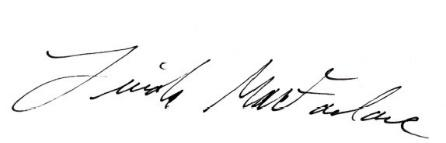 Linda MacFarlane